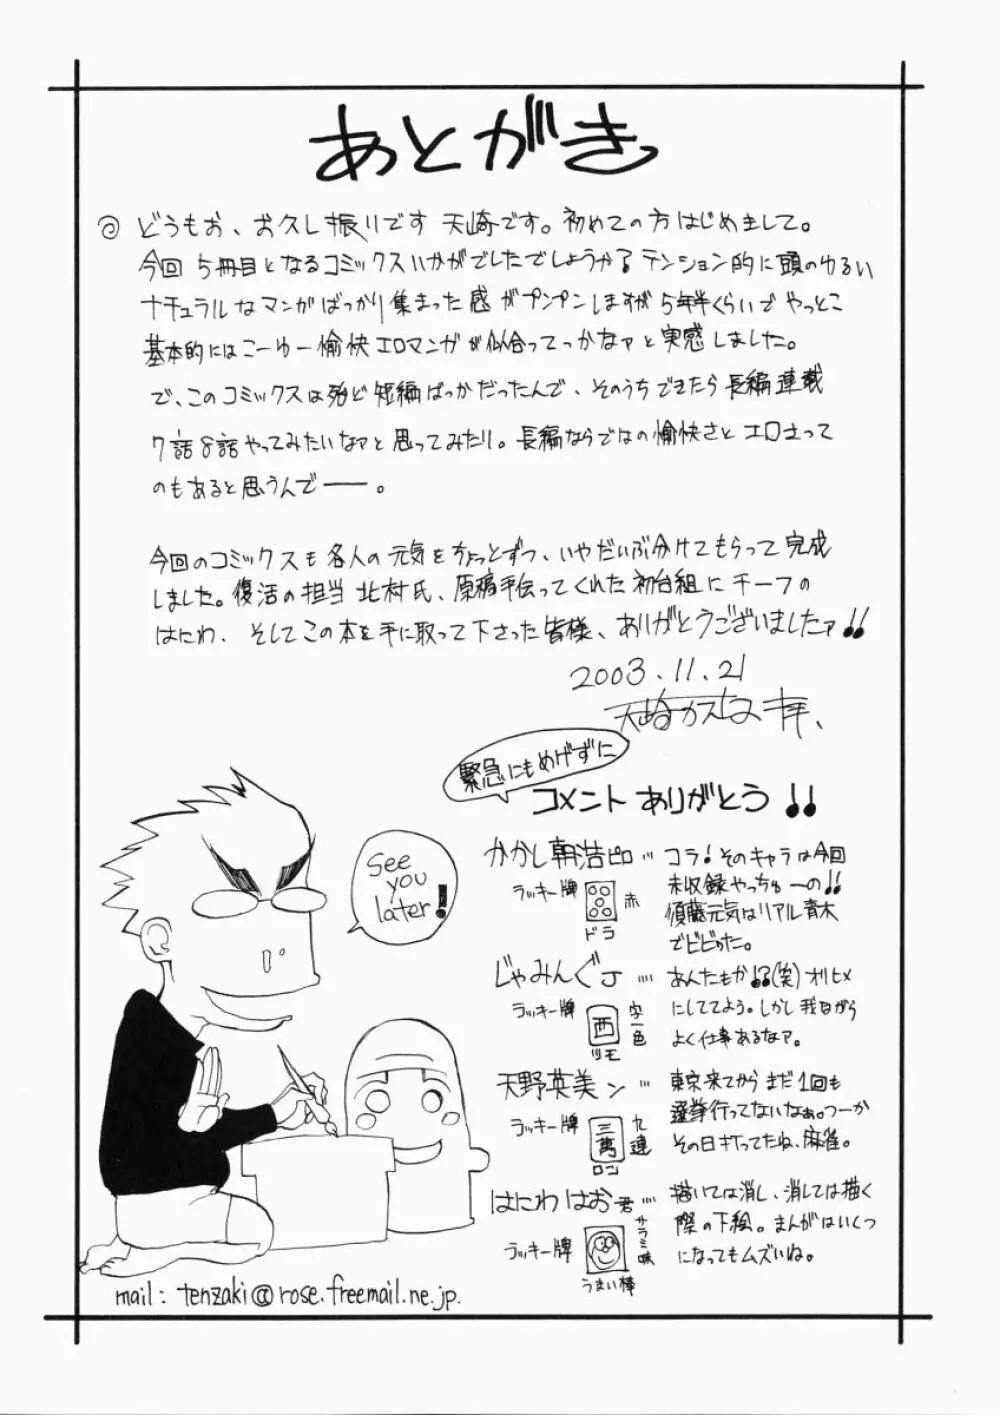 あとがき
◎ どうもお、お久し振りです 天崎です。初めての方はじめまして。
今回 5冊目となるコミックスいかがでしたでしょうか？テンション的に頭のゆるい
ナチュラルなマンガばっかり集まった感がプンプンしますが5年半くらいでやっとこ
基本的にはこーゆー愉快エロマンガが似合ってっかなァと実感しました。
で、このコミックスは殆ど短編ばっかだったんで、そのうちできたら長編連載
7話8話やってみたいなァと思ってみたり。長編ならではの愉快さとエロさって
のもあると思うんでーー。
今回のコミックスも各人の元気をちょっとずつ、いやだいぶ分けてもらって完成
しました。復活の担当北村氏、原稿手伝ってくれた初台組にチーフの
はにわ、そしてこの本を手に取って下さった皆様、ありがとうございましたァ!!
2003.11.21
天崎カスなり 拝、
緊急にもめげずに
コメントありがとう!!
かかし朝浩ピロ…
ラッキー牌
赤
ドラ
コラ！そのキャラは今回
未収録やっちゅーの!!
須藤元気はリアル青木
でビビった。
じゃみんぐJ…
ラッキー牌
西
字一色
ツモ
あんたもか!?(笑)オリヒメ
にしててよう。しかし我ながら
よく仕事あるなァ。
天野英美ン…
ラッキー牌
三萬
九連
ロン
東京来てからまだ1回も
選挙行ってないなぁ。つーか
その日打ってたね、麻雀。
はにわはお君…
ラッキー牌
サラミ味
うまい棒
描いては消し、消しては描く
際の下絵。まんがはいくつ
になってもムズいね。
See
you
later!
mail: tenzaki@rose.freemail.ne.jp.